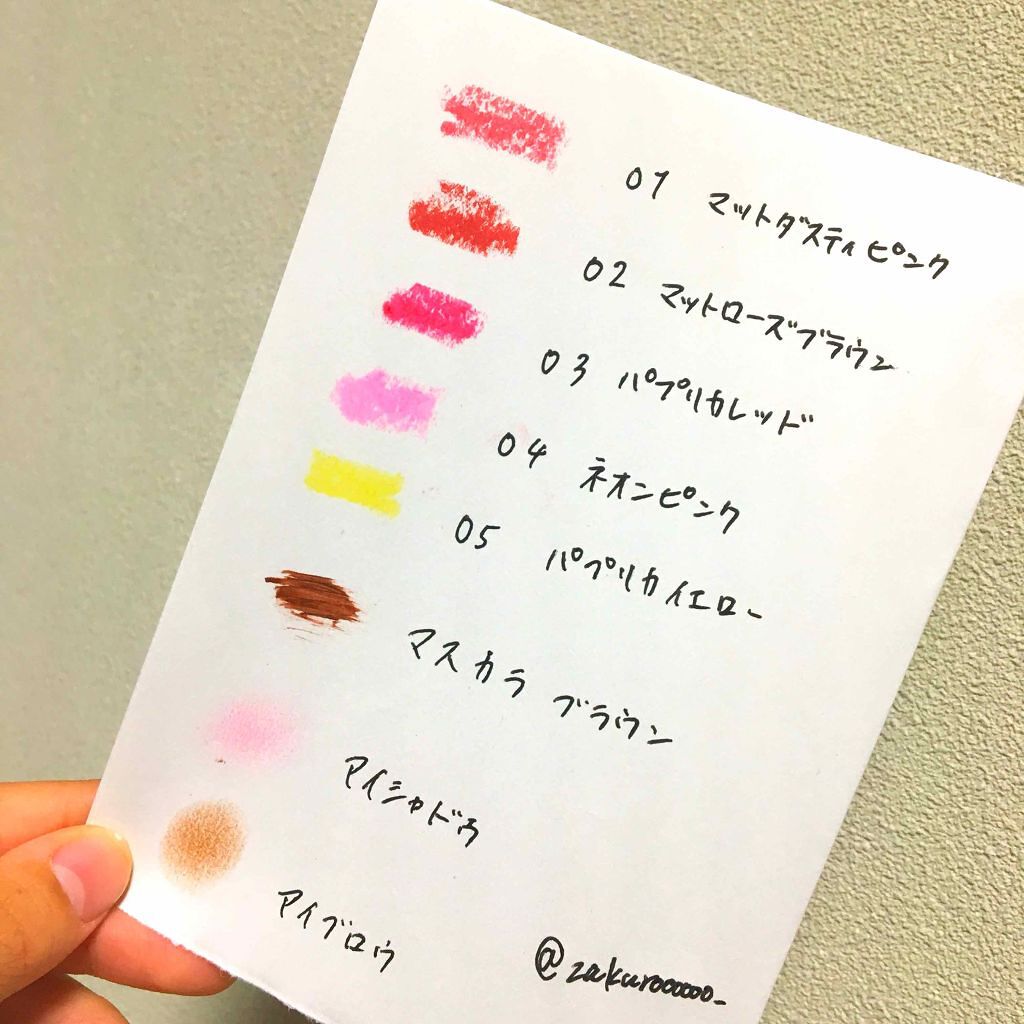 01 マットダスティピンク
02 マットローズブラウン
03 パプリカレッド
04 ネオンピンク
05 パプリカイエロー
マスカラ ブラウン
アイシャドウ
アイブロウ
@zakuroooooo_